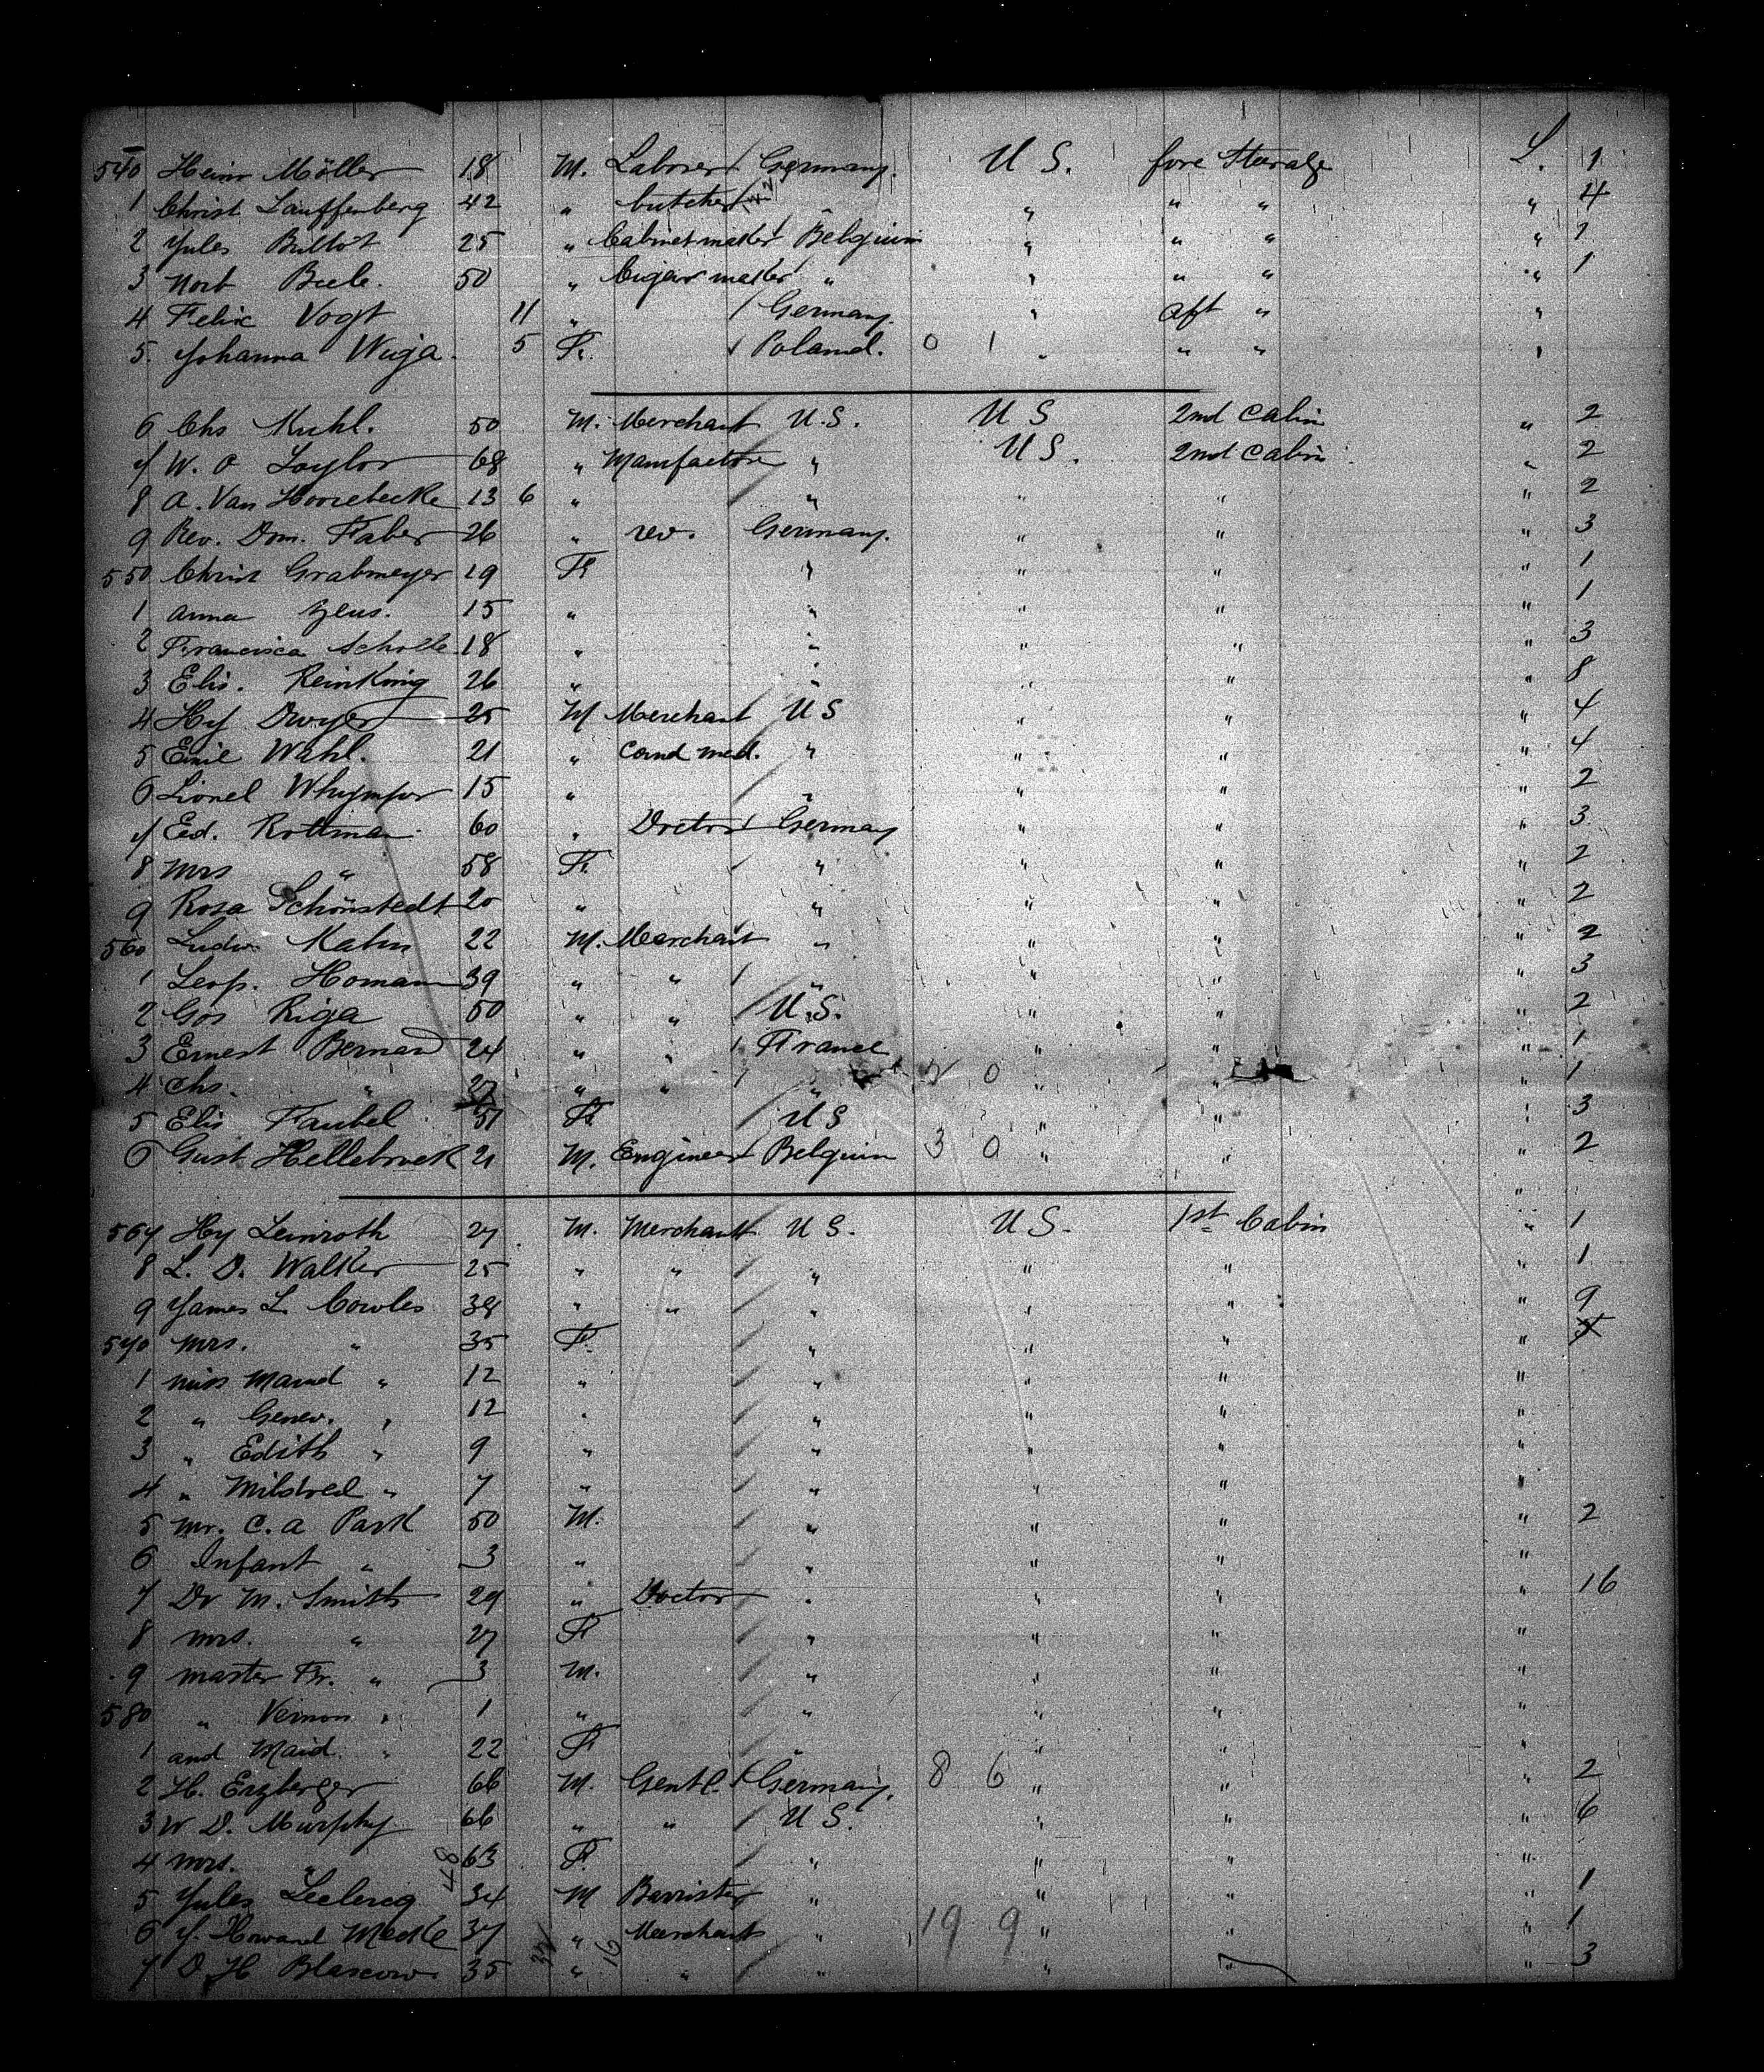 540 Heinr Möller 18 M. Laborer Germany. U S. fore Steerage L. 1
1 Christ Lauffenberg 42 " butcher " " " " " 4
2 Jules Bullot 25 " Cabinetmaker Belgium " " " " 1
3 Norb Beele. 50 " Cigar maker " " " " " 1
4 Felix Vogt 11 " Germany. " aft " "
5. Johanna Wuja. 5 F. Poland. 0 1 " " " "
6 Chs Kuhl. 50 M. Merchant U.S. U S 2nd Cabin " 2
7 W. O Taylor 68 " Manfacture " U S. 2nd Cabin " 2
8 A. Van Hoorebecke 13 6 " " " " " 2
9 Rev. Dom. Faber 26 " rev. Germany. " " " 3
550 Christ Grabmeyer 19 F " " " " 1
1 Anna 15 " " " " " 1
2 Francisca Scholle 18 " " " " " 3
3 Elis. Reinking 26 " " " " " 8
4 Hy Dwyer 25 M Merchant U S " " " 4
5 Emil Wahl. 21 " Cand med. " " " " 4
6 Lionel Whymper 15 " " " " " 2
7 Ed. Rottman 60 " Doctor Germany " " " 3
8 Mrs " 58 F. " " " " 2
9 Rosa Schönstedt 20 " " " " " 2
560 Ludw. Kahn 22 M. Merchant " " " " 2
1 Leop. Homann 39 " " " " " " 3
2 Gos Riga 50 " " U.S. " " " 2
3 Ernest Bernard 24 " " France " " " 1
4 Chs. " 27 " " " 0 " " " 1
5 Elis Faubel 51 F. U S " " " 3
6 Gust Hellebruck 21 M. Engineer Belgium 3 0 " " " 2
567 Hy Leinroth 27 M. Merchant U S. U S. 1st Cabin " 1
8 L. D. Walker 25 " " " " " " 1
9 James L. Cowles 38 " " " " " " 9
570 Mrs. " 35 F. " " " "
1 Miss Maud " 12 " " " " "
2 " Genev. " 12 " " " " "
3 " Edith " 9 " " " " "
4 " Mildred " 7 " " " " "
5 Mr. C. A Park 50 M. " " " " 2
6 Infant " 3 " " " " "
7 Dr M. Smith 29 " Doctor " " " " 16
8 Mrs. " 27 F " " " "
9 Master Fr. " 3 M. " " " "
580 " Vernon " 1 " " " " "
1 and Maid " 22 F " " " "
2 H. Erzberger 66 M. Gentl. Germany. 8 6 " " " 2
3 W D. Murphy 66 " " U S. " " " 6
4 Mrs. " 63 F. " " " "
5 Jules Leclercq 34 M Barrister " " " " 1
6 J. Howard 37 " Merchant " 19 9 " " " 1
7 O H Blascow 35 " " " " " " 3